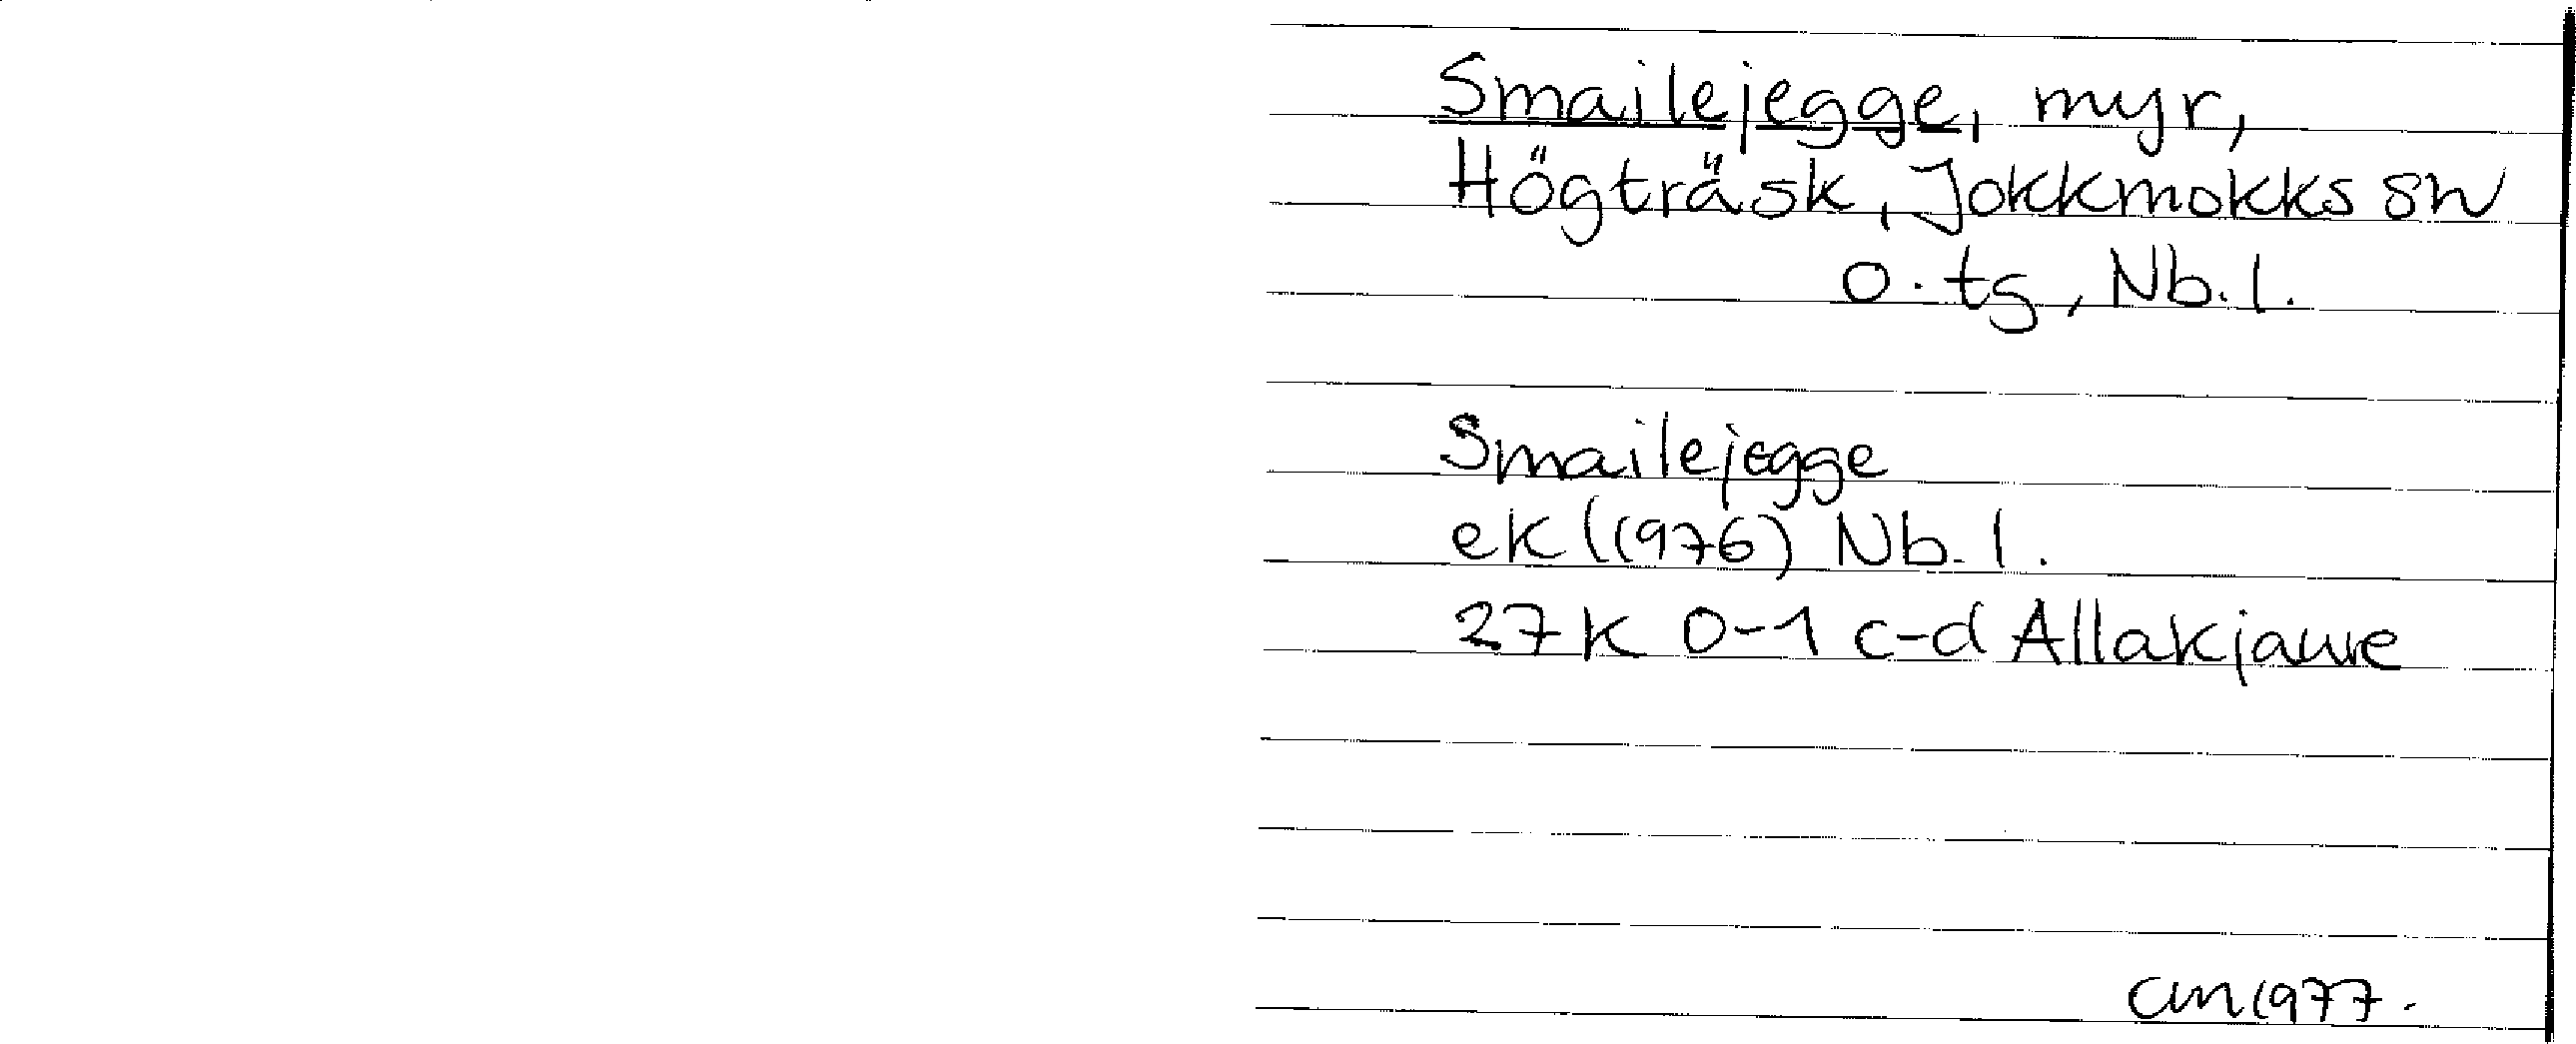 Smailejegge, myr,
Högträsk, Jokkmokks sn
o. tg, Nb. l.
Smailejegge
ek (1976) Nb. l.
27K 0-1 c-d Allakjaure
CM 1977.